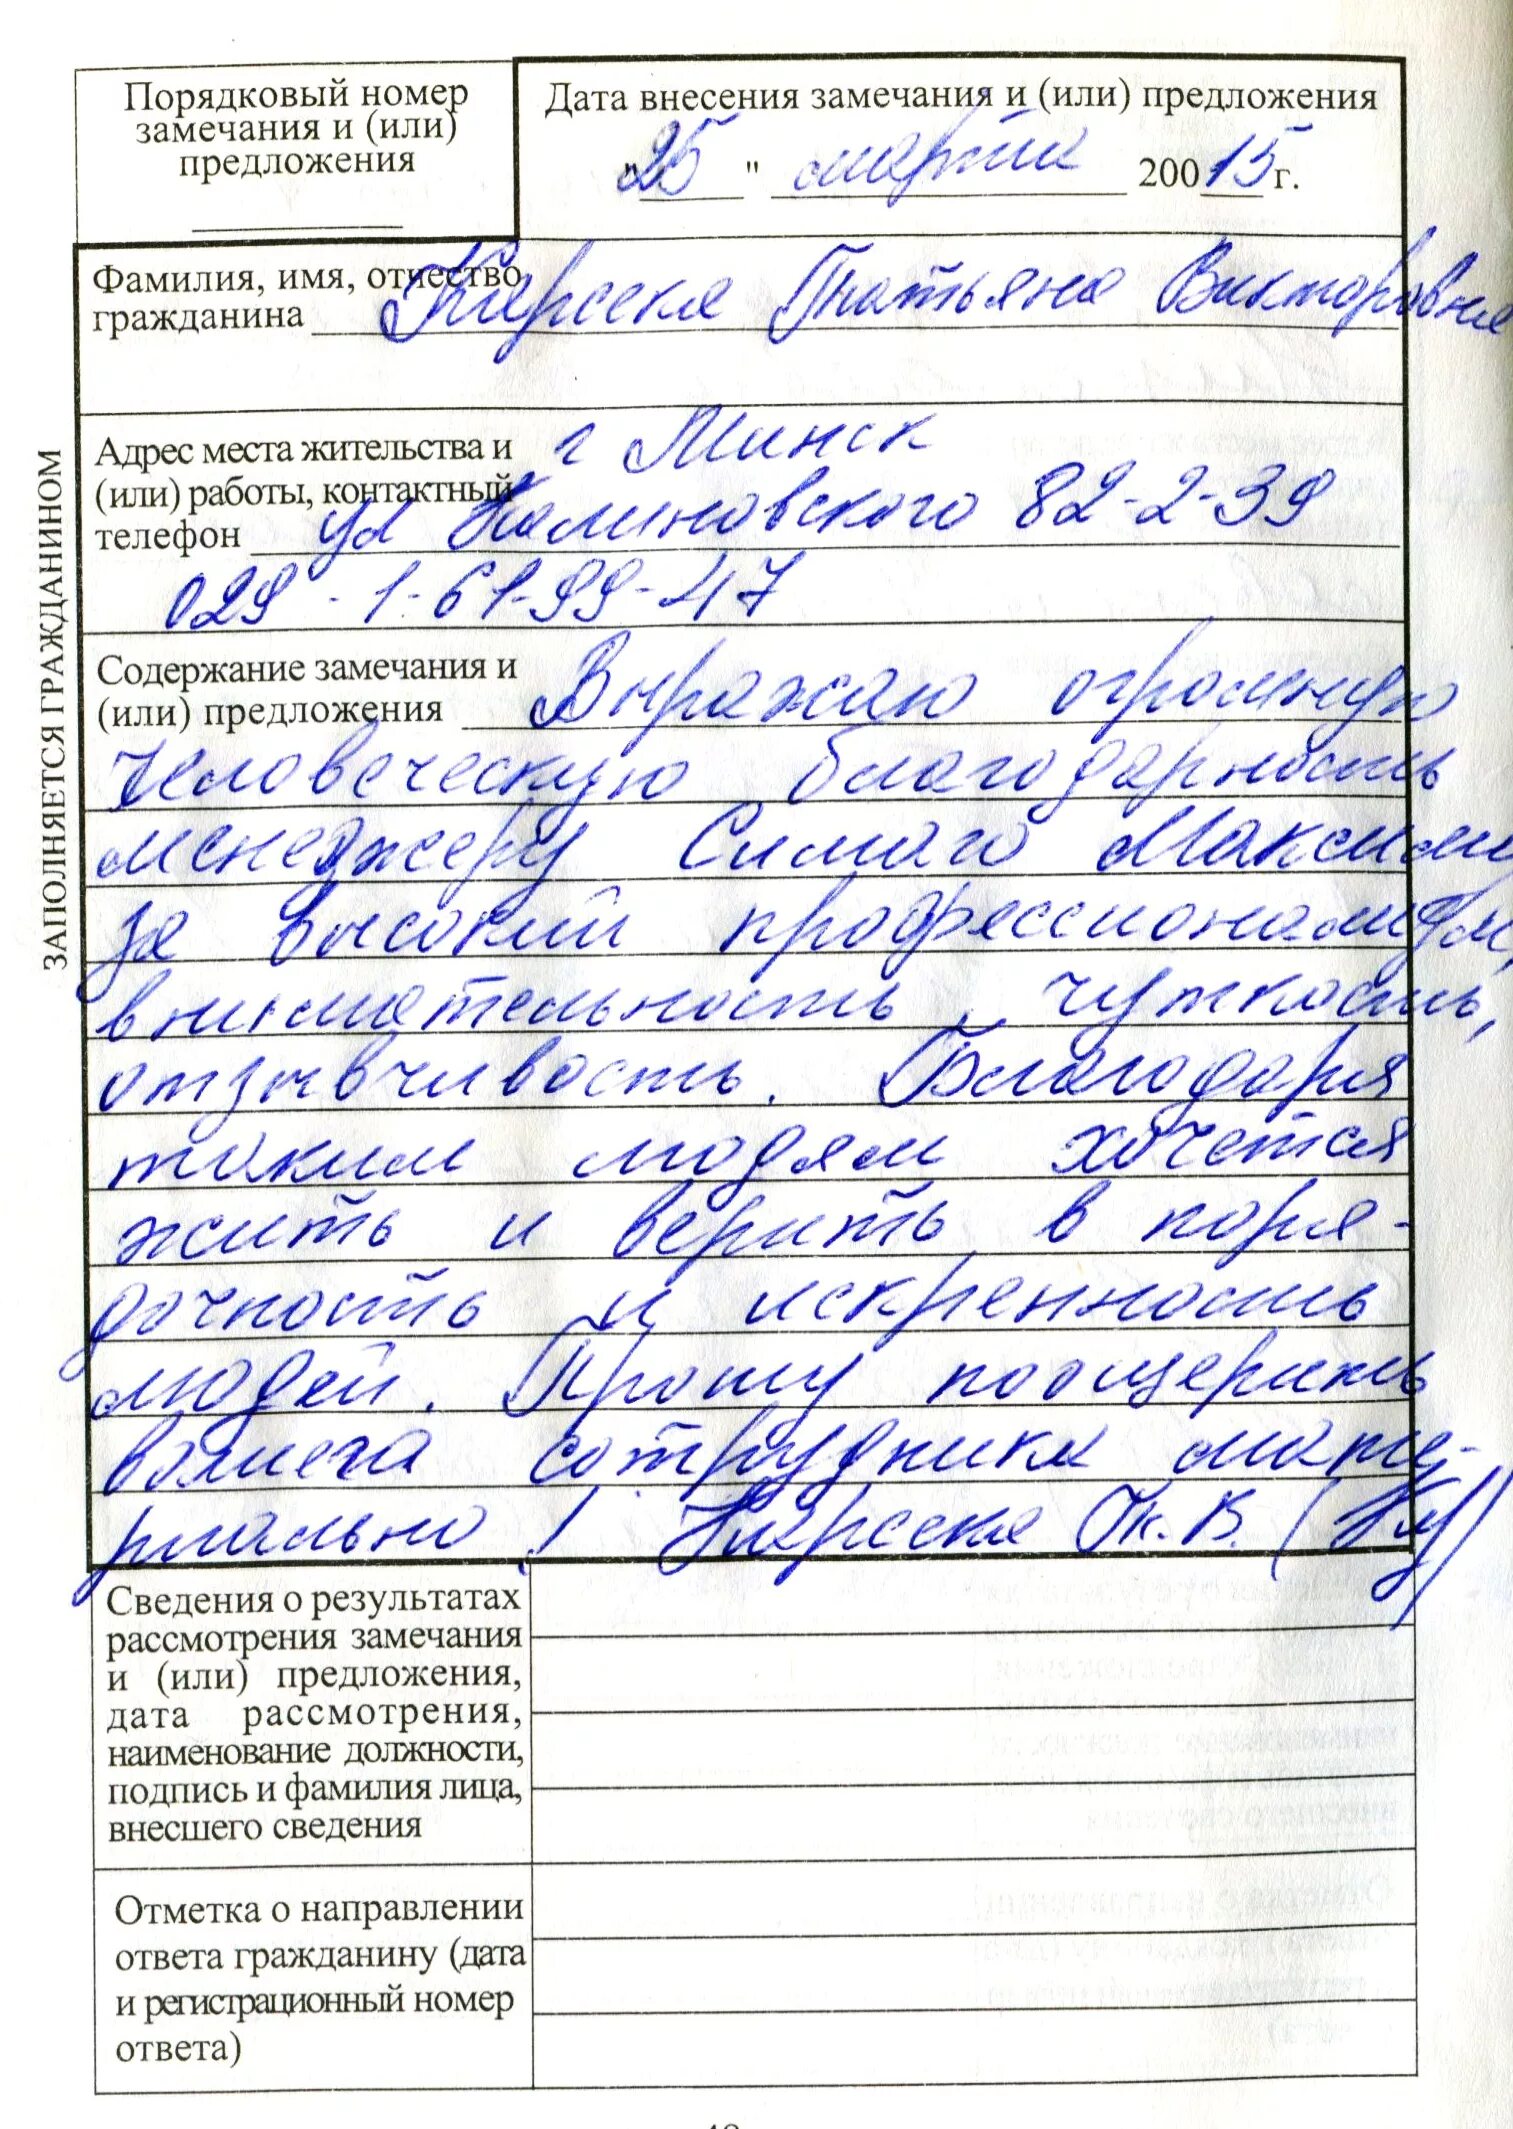 Порядковый номер
замечания и (или)
предложения
Дата внесения замечания и (или) предложения
"25" марта 20015 г.
ЗАПОЛНЯЕТСЯ ГРАЖДАНИНОМ
Фамилия, имя, отчество
гражданина Татьяна Викторовна
Адрес места жительства и г Минск
(или) работы, контактный
телефон ул Калиновского 82-2-39
029-1-61-99-47
Содержание замечания и
(или) предложения Выражаю огромную
человеческую благодарность
менеджеру Симаго Максиму
за высокий профессионализм,
внимательность, чуткость,
отзывчивость. Благодаря
таким людям хочется
жить и верить в поря-
дочность и искренность
людей. Прошу поощерить
вашего сотрудника мате-
риально!
Сведения о результатах
рассмотрения замечания
и (или) предложения,
дата рассмотрения,
наименование должности,
подпись и фамилия лица,
внесшего сведения
Отметка о направлении
ответа гражданину (дата
и регистрационный номер
ответа)